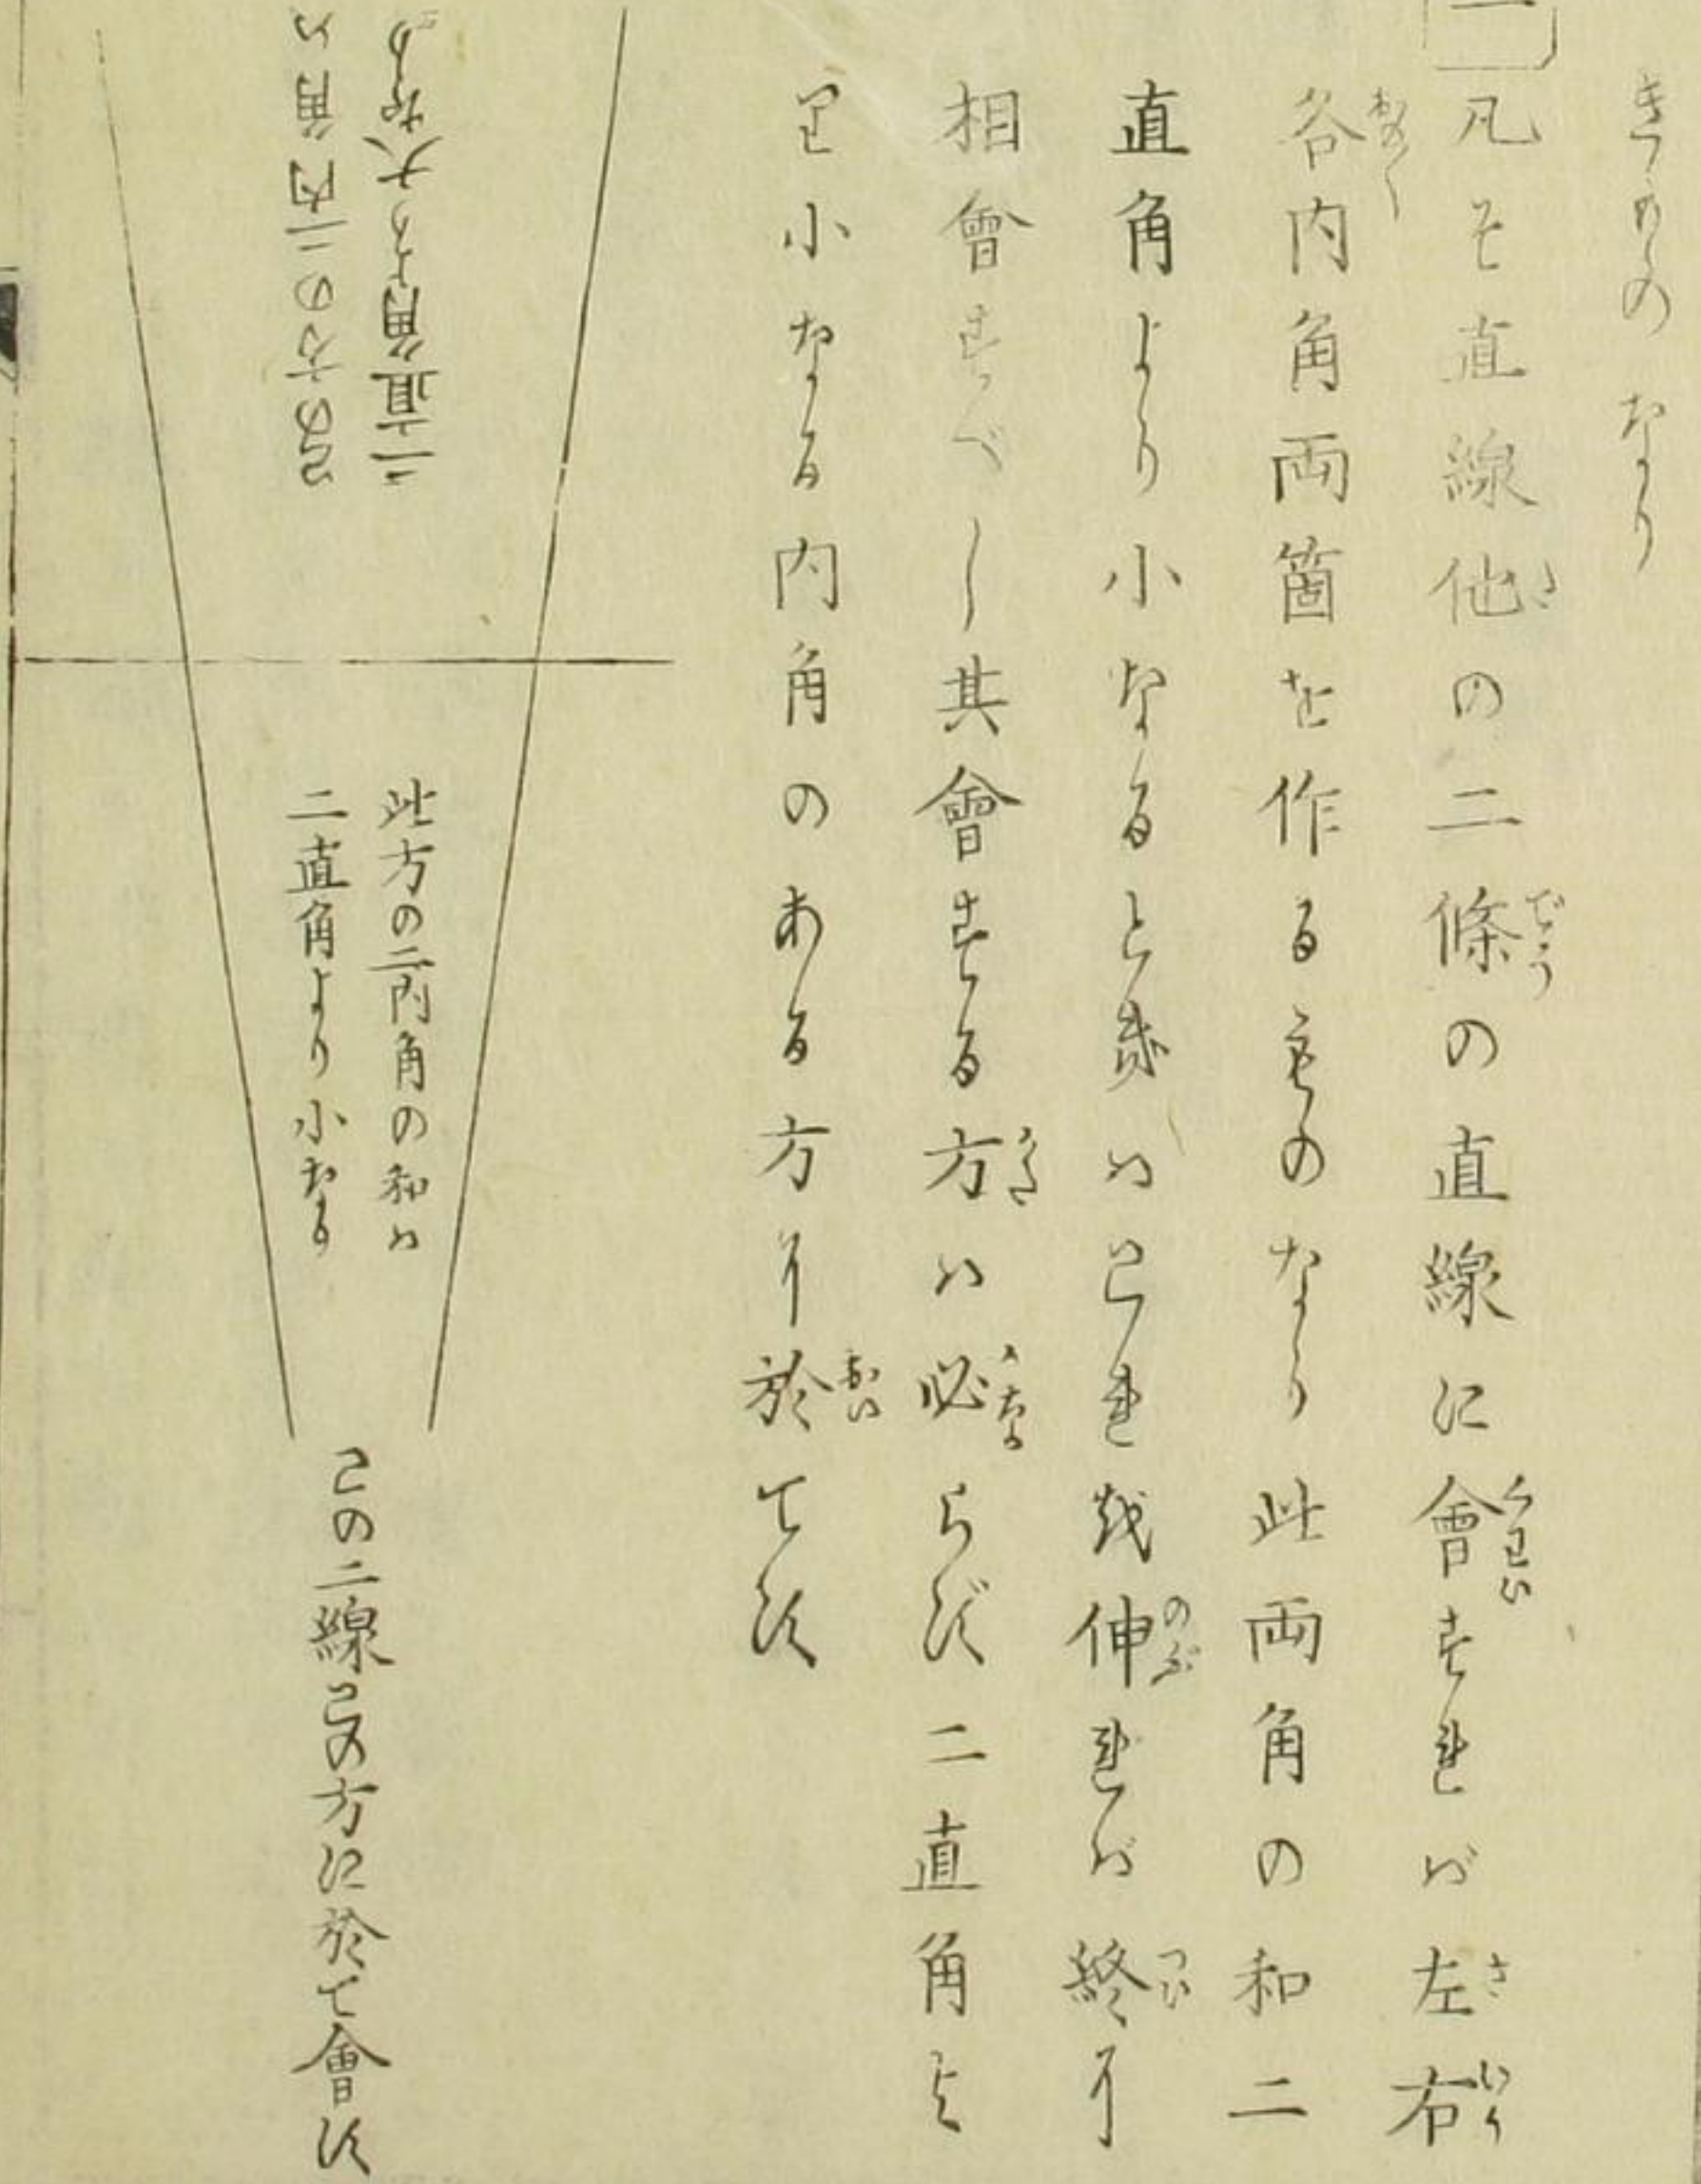 なり
凡そ直線他の二條の直線に會すれバ左右
各内角両箇を作るものなり此両角の和二
直角より小なるときハこれを伸れバ終に
相會すべし其會する方ハ必らず二直角よ
り小なる内角のある方に於てす
この方の二内角ハ
二直角より大なり
此方の二内角の和ハ
二直角より小なる
この二線この方に於て會す